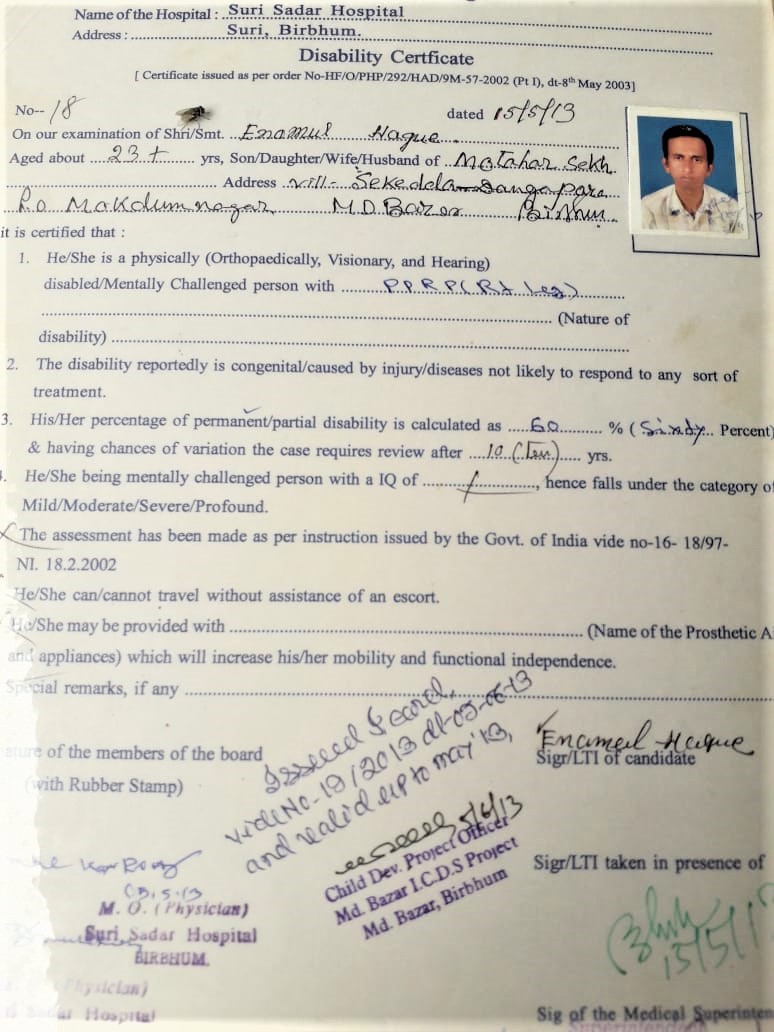 Name of the Hospital : Suri Sadar Hospital
Address : Suri, Birbhum.
Disability Certficate
[ Certificate issued as per order No-HF/O/PHP/292/HAD/9M-57-2002 (Pt I), dt-8th May 2003]
No-- 18 dated 15/5/13
On our examination of Shri/Smt. Enamul Haque
Aged about 23+ yrs, Son/Daughter/Wife/Husband of Motahar Sekh
Address Vill- Sekedda Dangapara
P.O Makdumnagar M.D Bazar Birbhum.
it is certified that :
1. He/She is a physically (Orthopaedically, Visionary, and Hearing)
disabled/Mentally Challenged person with P.P.R.P (Rt Leg)
(Nature of
disability)
2. The disability reportedly is congenital/caused by injury/diseases not likely to respond to any sort of
treatment.
3. His/Her percentage of permanent/partial disability is calculated as 60 % ( Sixty Percent)
& having chances of variation the case requires review after 10 (Ten) yrs.
. He/She being mentally challenged person with a IQ of / , hence falls under the category of
Mild/Moderate/Severe/Profound.
The assessment has been made as per instruction issued by the Govt. of India vide no-16- 18/97-
NI. 18.2.2002
He/She can/cannot travel without assistance of an escort.
He/She may be provided with (Name of the Prosthetic A
and appliances) which will increase his/her mobility and functional independence.
Special remarks, if any
Issued I card
vide No-18/2013 dt-05-06-13
and valid up to may'13,
Enamul Haque
Sigr/LTI of candidate
ature of the members of the board
(with Rubber Stamp)
5/6/13
Child Dev. Project Officer
Md. Bazar I.C.D.S Project
Md. Bazar, Birbhum
Sigr/LTI taken in presence of
15/5/1
M. O. (Physician)
Suri Sadar Hospital
BIRBHUM.
Physician)
Sadar Hospital
Sig of the Medical Superinten